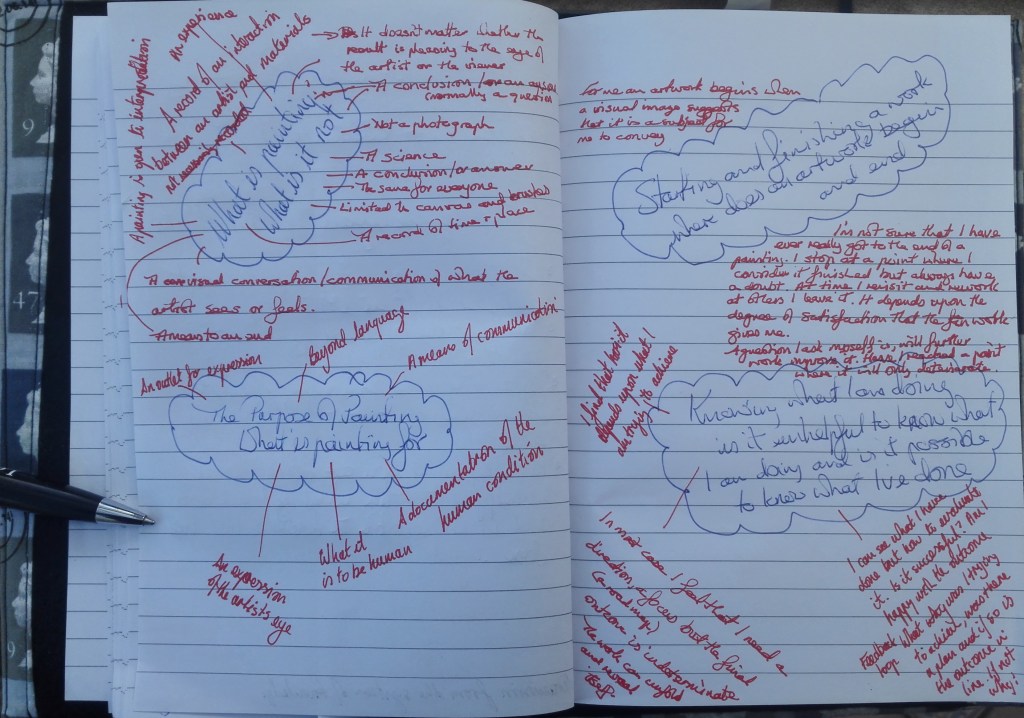 An experience
A painting is open to interpretation
A record of an interaction
between an artist and materials
not
It doesn't matter whether the
result is pleasing to the eye of
the artist or the viewer
A conclusion / or
(normally a question
Not a photograph
A science
A conclusion / or answer
The same for everyone
Limited to canvas and brushes
A record of time + place
What is painting
What is it not
A visual conversation / communication of what the
artist sees or feels.
A means to an end
An outlet for expression
Beyond language
A means of communication
The Purpose of Painting
What is painting for
An expression
of the artists eye
What it
is to be human
A documentation of the
human condition
For me an artwork begins when
a visual image suggests
that it is a subject for
me to convey
Starting and finishing a work
where does an artwork begin
and end
I'm not sure that I have
ever really got to the end of a
painting. I stop at a point where I
consider it finished but always have
a doubt. At time I revisit and rework
at others I leave it. It depends upon the
degree of satisfaction that the work
gives me.
A question I ask myself is, will further
work improve it. Have I reached a point
where it will only deteriorate.
I find that this
depends upon what I
am trying to achieve
Knowing what I am doing
is it unhelpful to know what
I am doing and is it possible
to know what I've done
In most cases I feel that I need a
direction, a focus but the final
(a road map)
outcome is indeterminate
The work can unfold
and reveal
itself
I can see what I have
done but how to evaluate
it. Is it successful? Am I
happy with the outcome
Feedback What was I trying
loop to achieve, was there
a plan and if so is
the outcome in
line. if not
why?
9
47